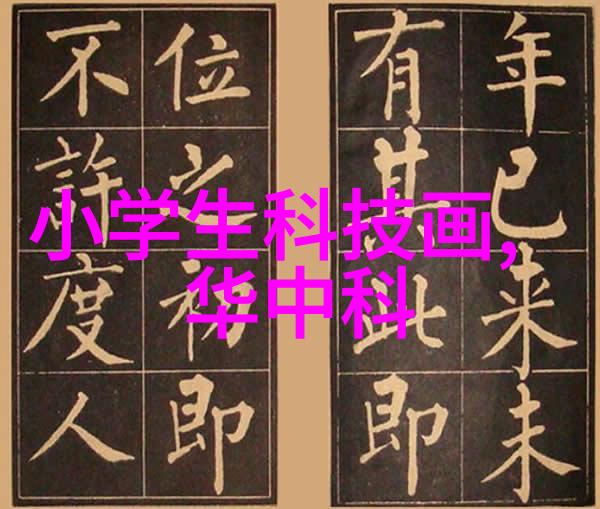 年已来未
有其此即
位之初即
不許度人
小学生科技画,
华中科